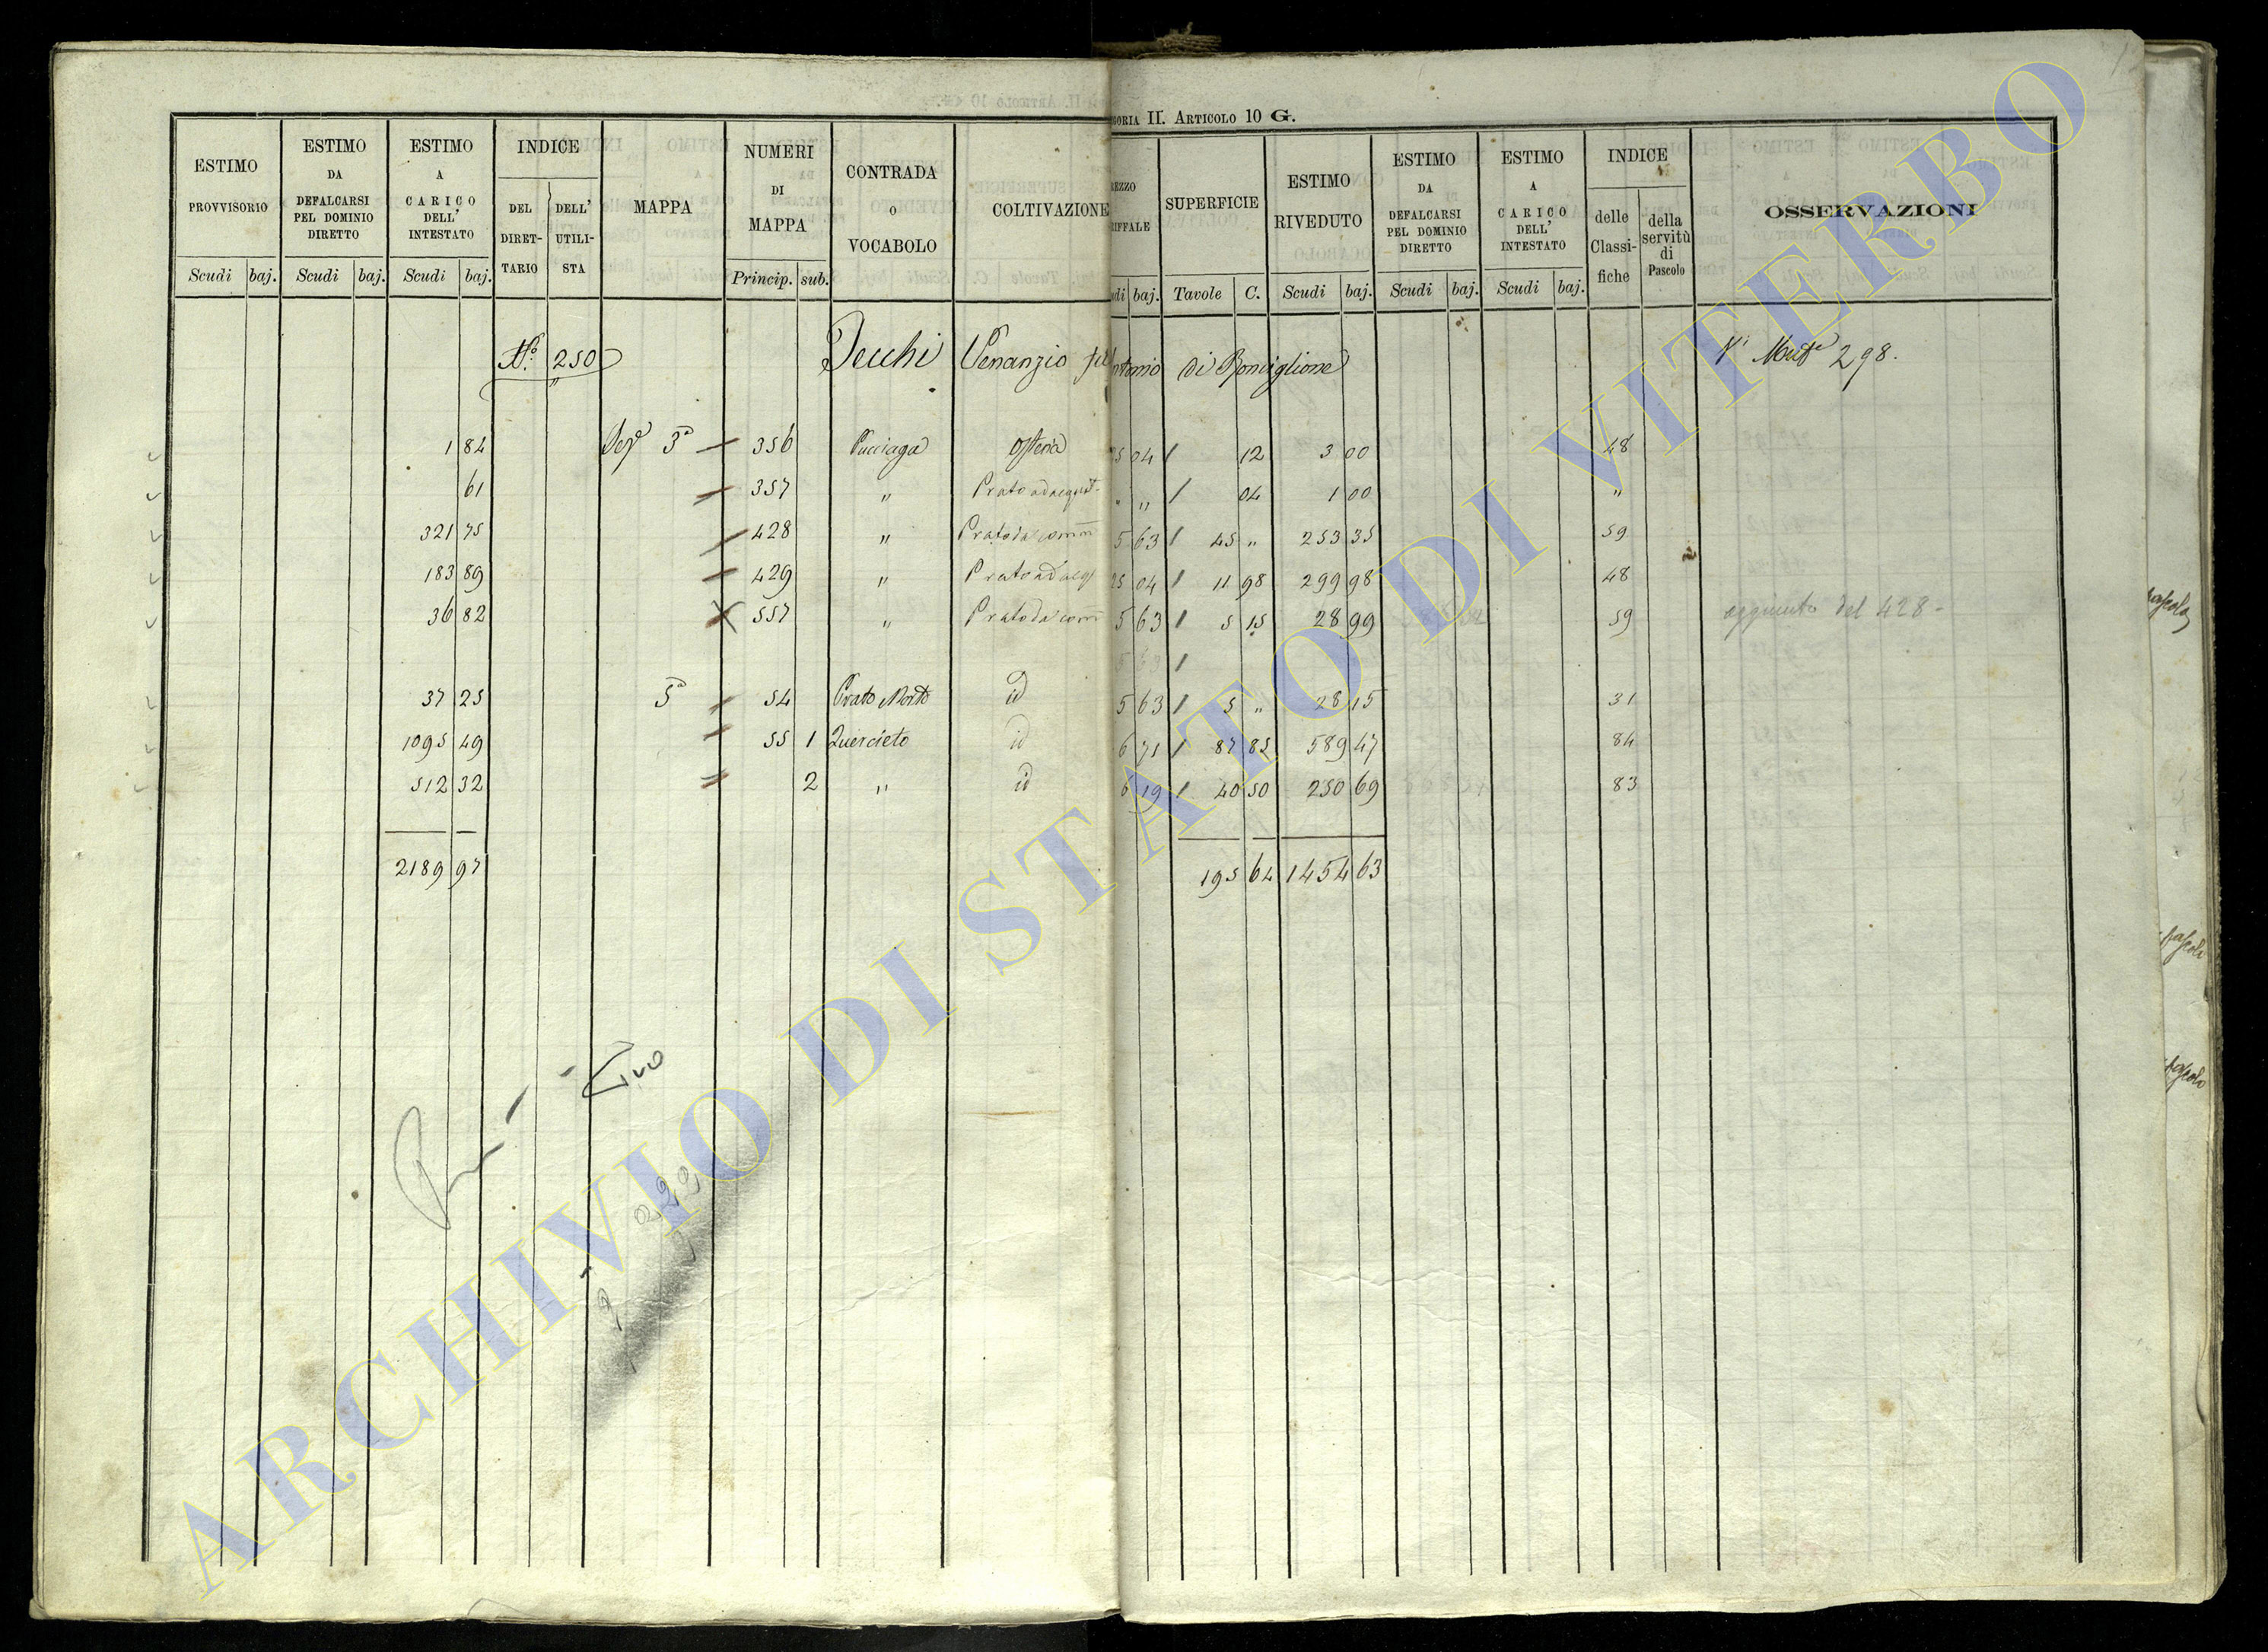 GORIA II. ARTICOLO 10 G.
ESTIMO PROVVISORIO
Scudi baj.
ESTIMO DA DEFALCARSI PEL DOMINIO DIRETTO
Scudi baj.
ESTIMO A CARICO DELL' INTESTATO
Scudi baj.
INDICE
DEL DIRETTARIO
DELL' UTILISTA
MAPPA
NUMERI DI MAPPA
Princip. sub.
CONTRADA O VOCABOLO
COLTIVAZIONE
EZZO
RIFFALE
di baj.
SUPERFICIE
Tavole C.
ESTIMO RIVEDUTO
Scudi baj.
ESTIMO DA DEFALCARSI PEL DOMINIO DIRETTO
Scudi baj.
ESTIMO A CARICO DELL' INTESTATO
Scudi baj.
INDICE
delle Classifiche
della servitù di Pascolo
OSSERVAZIONI
N.° 250 Venanzio di Ronciglione 298.
1 84 3ª 356 Osteria 04 12 3 00 48
61 357 " Prato " 04 1 00 "
321 75 428 " Prato da 5 63 45 " 253 35 59
183 89 429 " Prato 04 11 98 299 98 48
36 82 557 " Prato da 5 63 5 15 28 99 59 aggiunto del 428 -
5 63
37 25 5ª 54 Prato Morto id 5 63 5 " 28 15 31
1095 49 55 1 Quercieto id 6 71 87 85 589 47 84
512 32 2 " id 6 19 40 50 250 69 83
2189 97 195 64 1454 63
ARCHIVIO DI STATO DI VITERBO